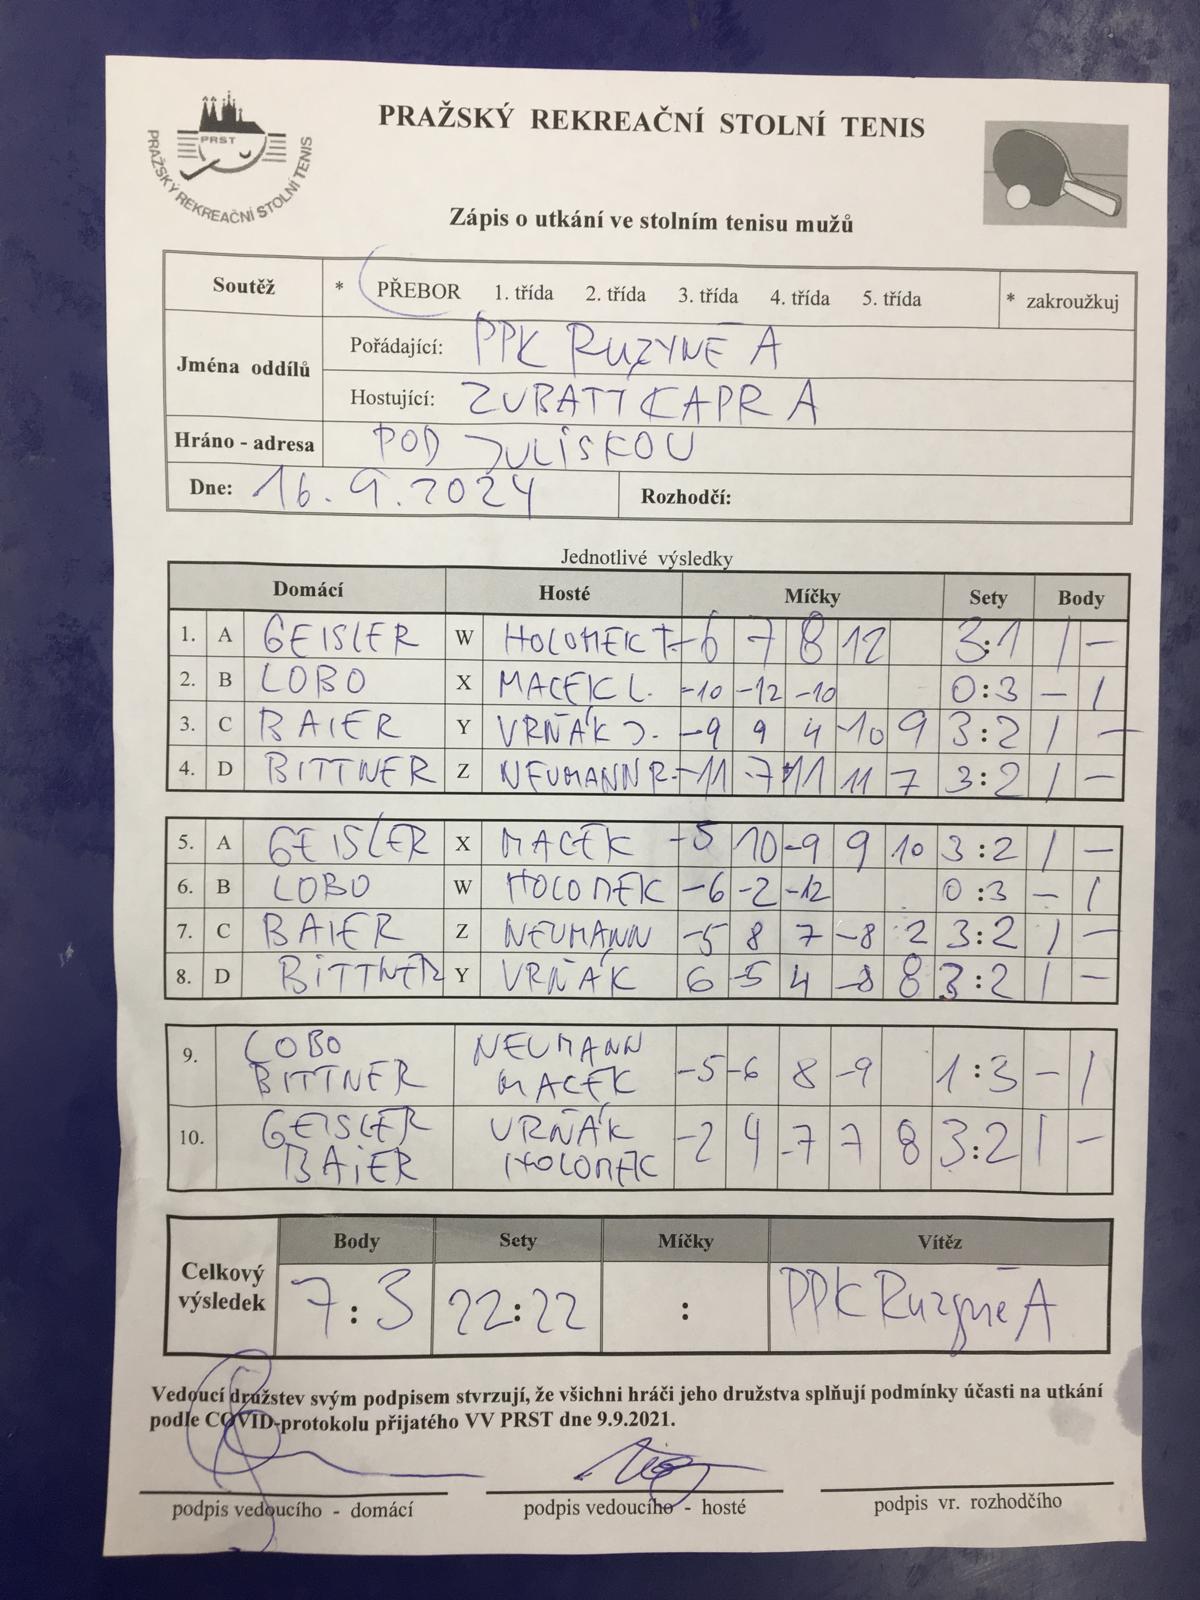 PRAŽSKÝ REKREAČNÍ STOLNÍ TENIS
PRST
PRAŽSKÝ REKREAČNÍ STOLNÍ TENIS
Zápis o utkání ve stolním tenisu mužů
Soutěž * PŘEBOR 1. třída 2. třída 3. třída 4. třída 5. třída * zakroužkuj
Jména oddílů
Pořádající: PPK RUZYNĚ A
Hostující: ZUBATÝ KAPR A
Hráno - adresa POD JULISKOU
Dne: 16.9.2024 Rozhodčí:
Jednotlivé výsledky
Domácí Hosté Míčky Sety Body
1. A GEISLER W HOLOMEK T. -6 7 8 12 3:1 1 -
2. B LOBO X MACEK L. -10 -12 -10 0:3 - 1
3. C BAIER Y VRŇÁK J. -9 9 4 -10 9 3:2 1 -
4. D BITTNER Z NEUMANN R. -11 -7 11 11 7 3:2 1 -
5. A GEISLER X MACEK -5 10 -9 9 10 3:2 1 -
6. B LOBO W HOLOMEK -6 -2 -12 0:3 - 1
7. C BAIER Z NEUMANN -5 8 7 -8 2 3:2 1 -
8. D BITTNER Y VRŇÁK 6 -5 4 -8 8 3:2 1 -
9. LOBO NEUMANN
BITTNER MACEK -5 -6 8 -9 1:3 - 1
10. GEISLER VRŇÁK
BAIER HOLOMEK -2 4 -7 7 8 3:2 1 -
Body Sety Míčky Vítěz
Celkový výsledek 7:3 22:22 : PPK Ruzyně A
Vedoucí družstev svým podpisem stvrzují, že všichni hráči jeho družstva splňují podmínky účasti na utkání
podle COVID-protokolu přijatého VV PRST dne 9.9.2021.
podpis vedoucího - domácí podpis vedoucího - hosté podpis vr. rozhodčího